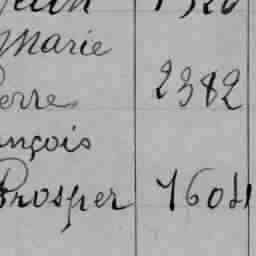 Marie
erre 2382
nçois
Prosper 1604